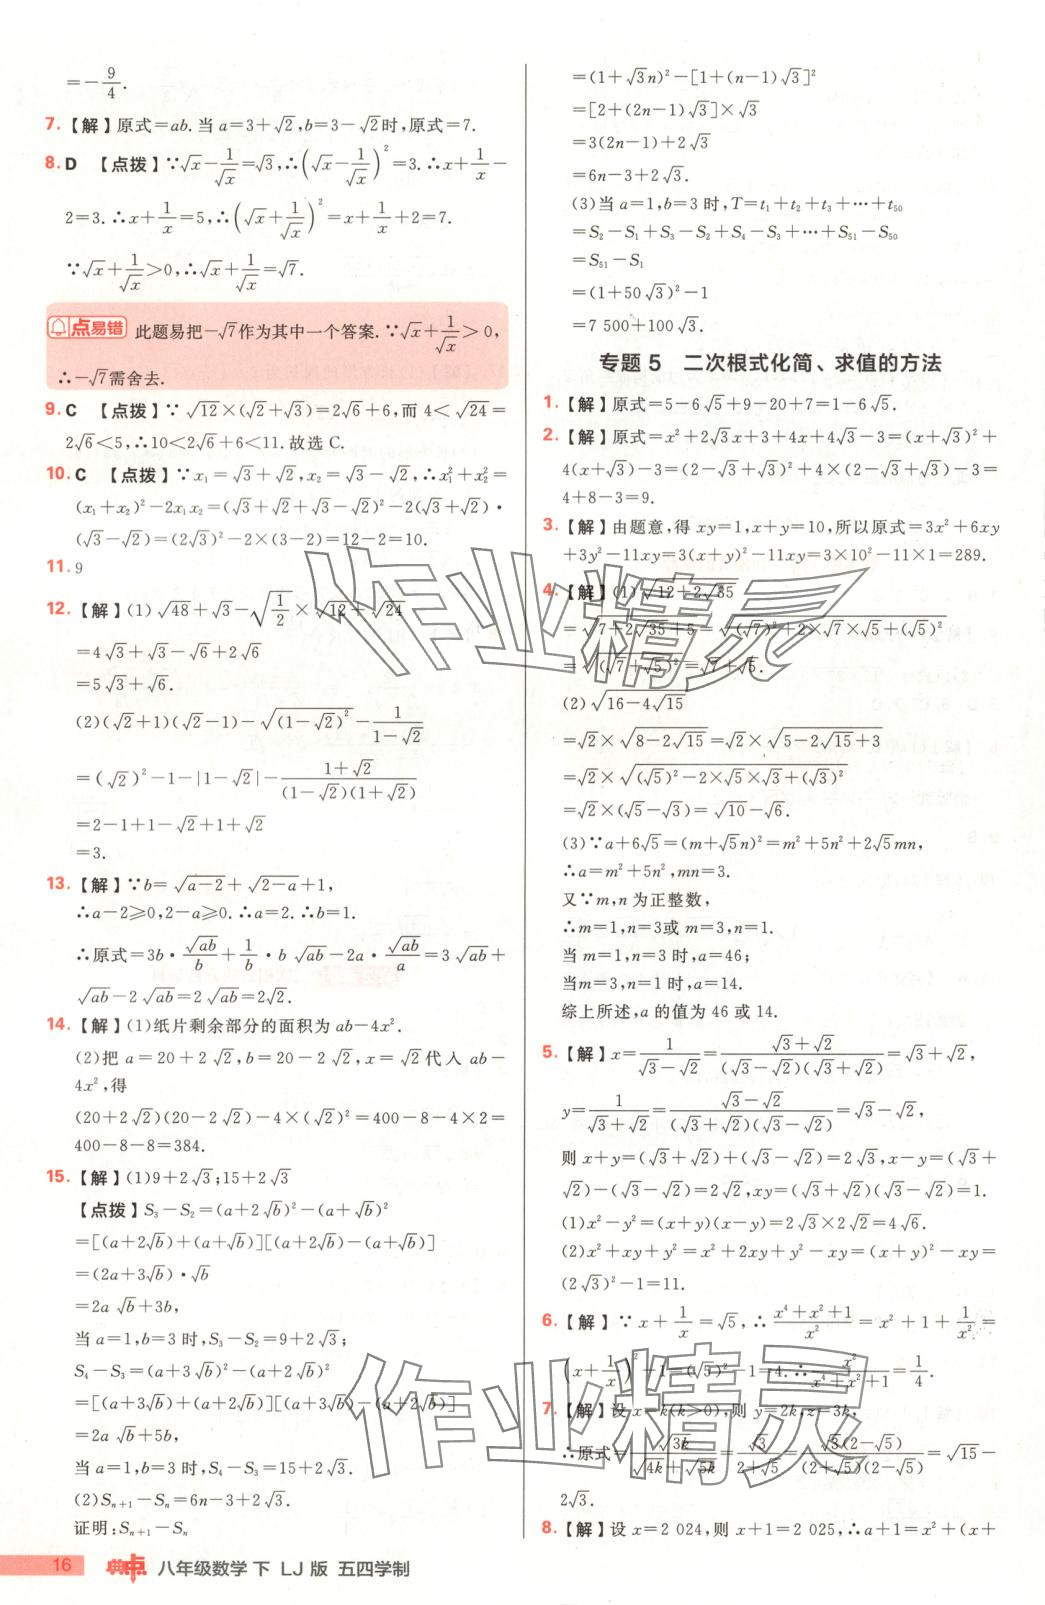 =-9/4.
7.【解】原式=ab.当a=3+√2,b=3-√2时,原式=7.
8. D 【点拨】∵√x-1/√x=√3,∴(√x-1/√x)²=3.∴x+1/x-
2=3.∴x+1/x=5,∴(√x+1/√x)²=x+1/x+2=7.
∵√x+1/√x>0,∴√x+1/√x=√7.
点易错 此题易把-√7作为其中一个答案.∵√x+1/√x>0,
∴-√7需舍去.
9. C 【点拨】∵√12×(√2+√3)=2√6+6,而4<√24=
2√6<5,∴10<2√6+6<11.故选C.
10. C 【点拨】∵x₁=√3+√2,x₂=√3-√2,∴x₁²+x₂²=
(x₁+x₂)²-2x₁x₂=(√3+√2+√3-√2)²-2(√3+√2)·
(√3-√2)=(2√3)²-2×(3-2)=12-2=10.
11. 9
12.【解】(1)√48+√3-√(1/2)×√12+√24
=4√3+√3-√6+2√6
=5√3+√6.
(2)(√2+1)(√2-1)-√((1-√2)²)-1/(1-√2)
=(√2)²-1-|1-√2|-(1+√2)/((1-√2)(1+√2))
=2-1+1-√2+1+√2
=3.
13.【解】∵b=√(a-2)+√(2-a)+1,
∴a-2≥0,2-a≥0.∴a=2.∴b=1.
∴原式=3b·√(ab)/b+1/b·b√(ab)-2a·√(ab)/a=3√(ab)+
√(ab)-2√(ab)=2√(ab)=2√2.
14.【解】(1)纸片剩余部分的面积为ab-4x².
(2)把a=20+2√2,b=20-2√2,x=√2代入ab-
4x²,得
(20+2√2)(20-2√2)-4×(√2)²=400-8-4×2=
400-8-8=384.
15.【解】(1)9+2√3;15+2√3
【点拨】S₃-S₂=(a+2√b)²-(a+√b)²
=[(a+2√b)+(a+√b)][(a+2√b)-(a+√b)]
=(2a+3√b)·√b
=2a√b+3b,
当a=1,b=3时,S₃-S₂=9+2√3;
S₄-S₃=(a+3√b)²-(a+2√b)²
=[(a+3√b)+(a+2√b)][(a+3√b)-(a+2√b)]
=2a√b+5b,
当a=1,b=3时,S₄-S₃=15+2√3.
(2)Sₙ₊₁-Sₙ=6n-3+2√3.
证明:Sₙ₊₁-Sₙ
16 典中点 八年级数学 下 LJ版 五四学制
=(1+√3n)²-[1+(n-1)√3]²
=[2+(2n-1)√3]×√3
=3(2n-1)+2√3
=6n-3+2√3.
(3)当a=1,b=3时,T=t₁+t₂+t₃+…+t₅₀
=S₂-S₁+S₃-S₂+S₄-S₃+…+S₅₁-S₅₀
=S₅₁-S₁
=(1+50√3)²-1
=7 500+100√3.
专题5 二次根式化简、求值的方法
1.【解】原式=5-6√5+9-20+7=1-6√5.
2.【解】原式=x²+2√3x+3+4x+4√3-3=(x+√3)²+
4(x+√3)-3=(2-√3+√3)²+4×(2-√3+√3)-3=
4+8-3=9.
3.【解】由题意,得xy=1,x+y=10,所以原式=3x²+6xy
+3y²-11xy=3(x+y)²-11xy=3×10²-11×1=289.
4.【解】(1)√(12+2√35)
=√(7+2√35+5)=√((√7)²+2×√7×√5+(√5)²)
=√((√7+√5)²)=√7+√5.
(2)√(16-4√15)
=√2×√(8-2√15)=√2×√(5-2√15+3)
=√2×√((√5)²-2×√5×√3+(√3)²)
=√2×(√5-√3)=√10-√6.
(3)∵a+6√5=(m+√5n)²=m²+5n²+2√5mn,
∴a=m²+5n²,mn=3.
又∵m,n为正整数,
∴m=1,n=3或m=3,n=1.
当m=1,n=3时,a=46;
当m=3,n=1时,a=14.
综上所述,a的值为46或14.
5.【解】x=1/(√3-√2)=(√3+√2)/((√3-√2)(√3+√2))=√3+√2,
y=1/(√3+√2)=(√3-√2)/((√3+√2)(√3-√2))=√3-√2,
则x+y=(√3+√2)+(√3-√2)=2√3,x-y=(√3+
√2)-(√3-√2)=2√2,xy=(√3+√2)(√3-√2)=1.
(1)x²-y²=(x+y)(x-y)=2√3×2√2=4√6.
(2)x²+xy+y²=x²+2xy+y²-xy=(x+y)²-xy=
(2√3)²-1=11.
6.【解】∵x+1/x=√5,∴(x⁴+x²+1)/x²=x²+1+1/x²=
(x+1/x)²-1=(√5)²-1=4.∴x²/(x⁴+x²+1)=1/4.
7.【解】设x=k(k>0),则y=2k,z=3k,
∴原式=√(3k)/(√(4k)+√(5k))=√3/(2+√5)=√3(2-√5)/((2+√5)(2-√5))=√15-
2√3.
8.【解】设x=2 024,则x+1=2 025,∴a+1=x²+(x+
作业精灵
作业精灵